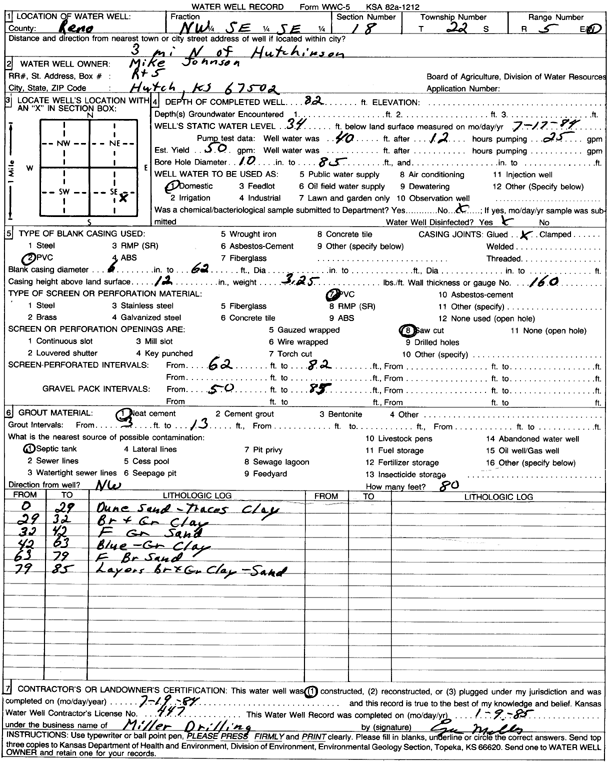 WATER WELL RECORD Form WWC-5 KSA 82a-1212
1 LOCATION OF WATER WELL: Fraction Section Number Township Number Range Number
County: Reno NW ¼ SE ¼ SE ¼ 18 T 22 S R 5 E/W
Distance and direction from nearest town or city street address of well if located within city?
3 mi N of Hutchinson
2 WATER WELL OWNER: Mike Johnson
RR#, St. Address, Box # : Rt 5 Board of Agriculture, Division of Water Resources
City, State, ZIP Code : Hutch, KS 67502 Application Number:
3 LOCATE WELL'S LOCATION WITH AN "X" IN SECTION BOX:
N
NW NE
W E
SW SE
X
S
1 Mile
4 DEPTH OF COMPLETED WELL. 82 ft. ELEVATION:
Depth(s) Groundwater Encountered 1. ft. 2. ft. 3. ft.
WELL'S STATIC WATER LEVEL 34 ft. below land surface measured on mo/day/yr 7-17-84
Pump test data: Well water was 40 ft. after 12 hours pumping 25 gpm
Est. Yield 50 gpm: Well water was ft. after hours pumping gpm
Bore Hole Diameter 10 in. to 85 ft., and in. to ft.
WELL WATER TO BE USED AS: 5 Public water supply 8 Air conditioning 11 Injection well
1 Domestic 3 Feedlot 6 Oil field water supply 9 Dewatering 12 Other (Specify below)
2 Irrigation 4 Industrial 7 Lawn and garden only 10 Observation well
Was a chemical/bacteriological sample submitted to Department? Yes No X ; If yes, mo/day/yr sample was sub-
mitted Water Well Disinfected? Yes X No
5 TYPE OF BLANK CASING USED: 5 Wrought iron 8 Concrete tile CASING JOINTS: Glued X Clamped
1 Steel 3 RMP (SR) 6 Asbestos-Cement 9 Other (specify below) Welded
2 PVC 4 ABS 7 Fiberglass Threaded
Blank casing diameter 6 in. to 62 ft., Dia in. to ft., Dia in. to ft.
Casing height above land surface 12 in., weight 3.25 lbs./ft. Wall thickness or gauge No. 160
TYPE OF SCREEN OR PERFORATION MATERIAL: 7 PVC 10 Asbestos-cement
1 Steel 3 Stainless steel 5 Fiberglass 8 RMP (SR) 11 Other (specify)
2 Brass 4 Galvanized steel 6 Concrete tile 9 ABS 12 None used (open hole)
SCREEN OR PERFORATION OPENINGS ARE: 5 Gauzed wrapped 8 Saw cut 11 None (open hole)
1 Continuous slot 3 Mill slot 6 Wire wrapped 9 Drilled holes
2 Louvered shutter 4 Key punched 7 Torch cut 10 Other (specify)
SCREEN-PERFORATED INTERVALS: From 62 ft. to 82 ft., From ft. to ft.
From ft. to ft., From ft. to ft.
GRAVEL PACK INTERVALS: From 50 ft. to 85 ft., From ft. to ft.
From ft. to ft., From ft. to ft.
6 GROUT MATERIAL: 1 Neat cement 2 Cement grout 3 Bentonite 4 Other
Grout Intervals: From 3 ft. to 13 ft., From ft. to ft., From ft. to ft.
What is the nearest source of possible contamination: 10 Livestock pens 14 Abandoned water well
1 Septic tank 4 Lateral lines 7 Pit privy 11 Fuel storage 15 Oil well/Gas well
2 Sewer lines 5 Cess pool 8 Sewage lagoon 12 Fertilizer storage 16 Other (specify below)
3 Watertight sewer lines 6 Seepage pit 9 Feedyard 13 Insecticide storage
Direction from well? NW How many feet? 80
FROM TO LITHOLOGIC LOG FROM TO LITHOLOGIC LOG
0 29 Dune Sand-Traces Clay
29 32 Br & Gr Clay
32 42 F Gr Sand
42 63 Blue-Gr Clay
63 79 F Br Sand
79 85 Layers Br & Gr Clay-Sand
7 CONTRACTOR'S OR LANDOWNER'S CERTIFICATION: This water well was (1) constructed, (2) reconstructed, or (3) plugged under my jurisdiction and was
completed on (mo/day/year) 7-19-84 and this record is true to the best of my knowledge and belief. Kansas
Water Well Contractor's License No. 447 This Water Well Record was completed on (mo/day/yr) 1-9-85
under the business name of Miller Drilling by (signature)
INSTRUCTIONS: Use typewriter or ball point pen, PLEASE PRESS FIRMLY and PRINT clearly. Please fill in blanks, underline or circle the correct answers. Send top
three copies to Kansas Department of Health and Environment, Division of Environment, Environmental Geology Section, Topeka, KS 66620. Send one to WATER WELL
OWNER and retain one for your records.